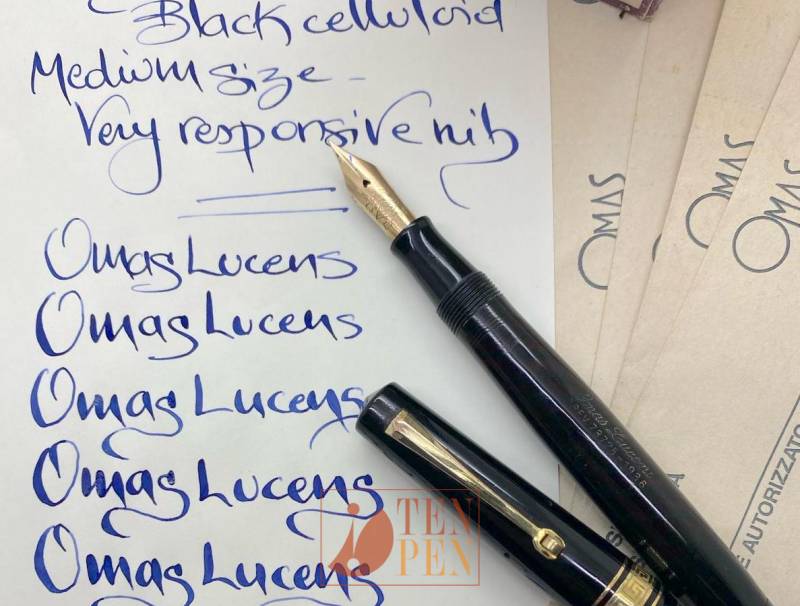 Black celluloid
Medium size -
Very responsive nib
Omas Lucens
Omas Lucens
Omas Lucens
Omas Lucens
Omas Lucens
OMAS
OMAS
OMAS
E AUTORIZZATO
TEN
PEN